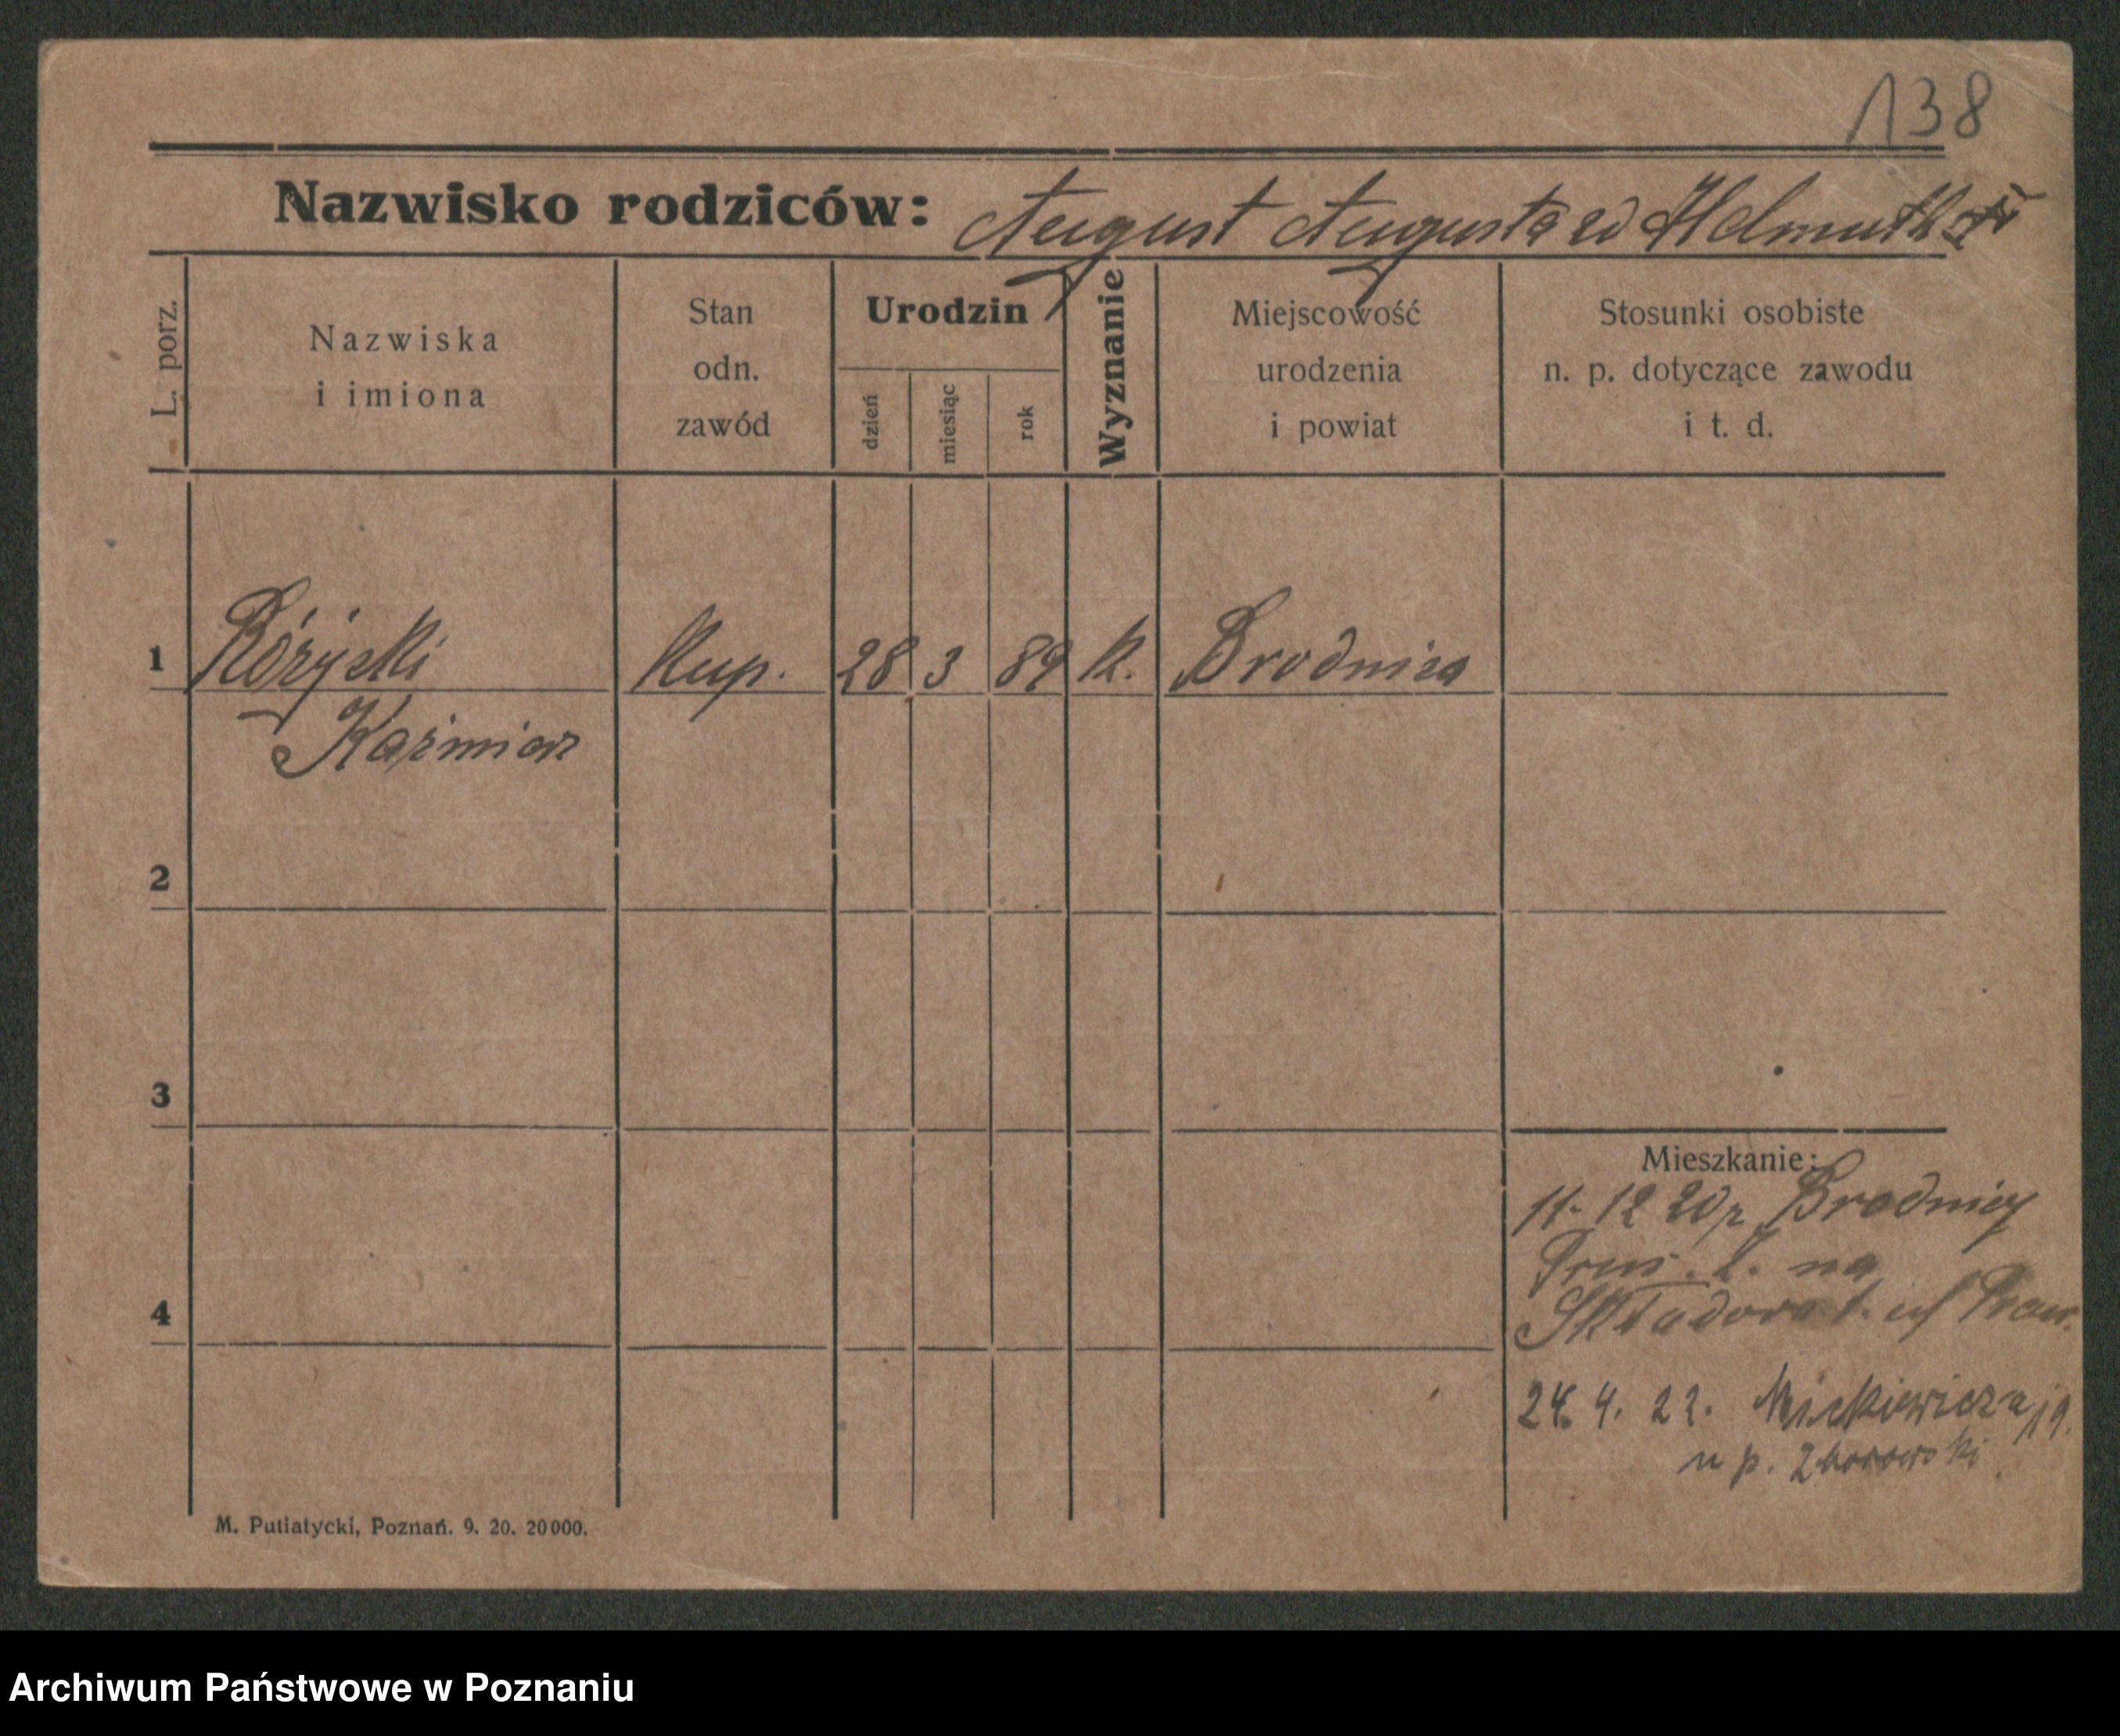 138
Nazwisko rodziców: August Augusta zd Helmuth
L. porz.
Nazwiska
i imiona
Stan
odn.
zawód
Urodzin
dzień
miesiąc
rok
Wyznanie
Miejscowość
urodzenia
i powiat
Stosunki osobiste
n. p. dotyczące zawodu
i t. d.
1 Różycki Kup. 28 3 89 k. Brodnica
Kaźmierz
2
3
4
Mieszkanie:
11. 12 20 z Brodnicy
na
24. 4. 22. Mickiewicza 19.
u p. Zborowski
M. Putiatycki, Poznań. 9. 20. 20000.
Archiwum Państwowe w Poznaniu